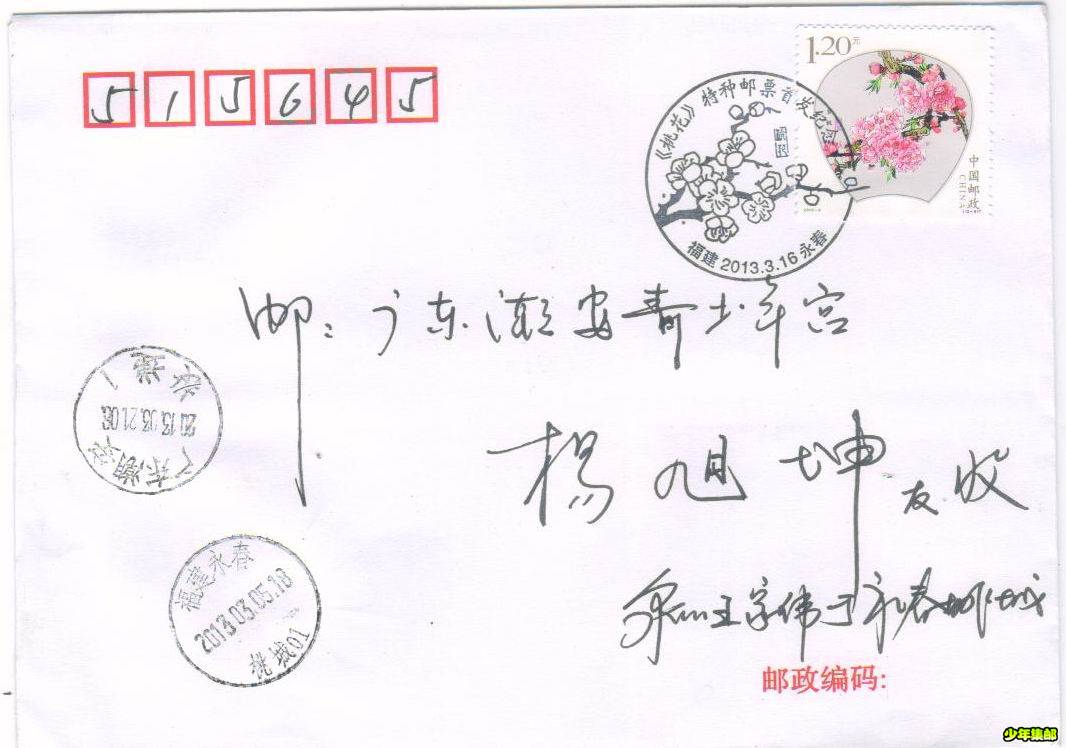 515645
1.20元
中国邮政
CHINA
《桃花》特种邮票首发纪念
福建 2013.3.16 永春
邮：广东潮安青少年宫
杨旭坤友收
王字伟于永春桃城
广东潮安
2013.03.21.08
投递1
福建永春
2013.03.05.18
桃城01
邮政编码:
少年集邮